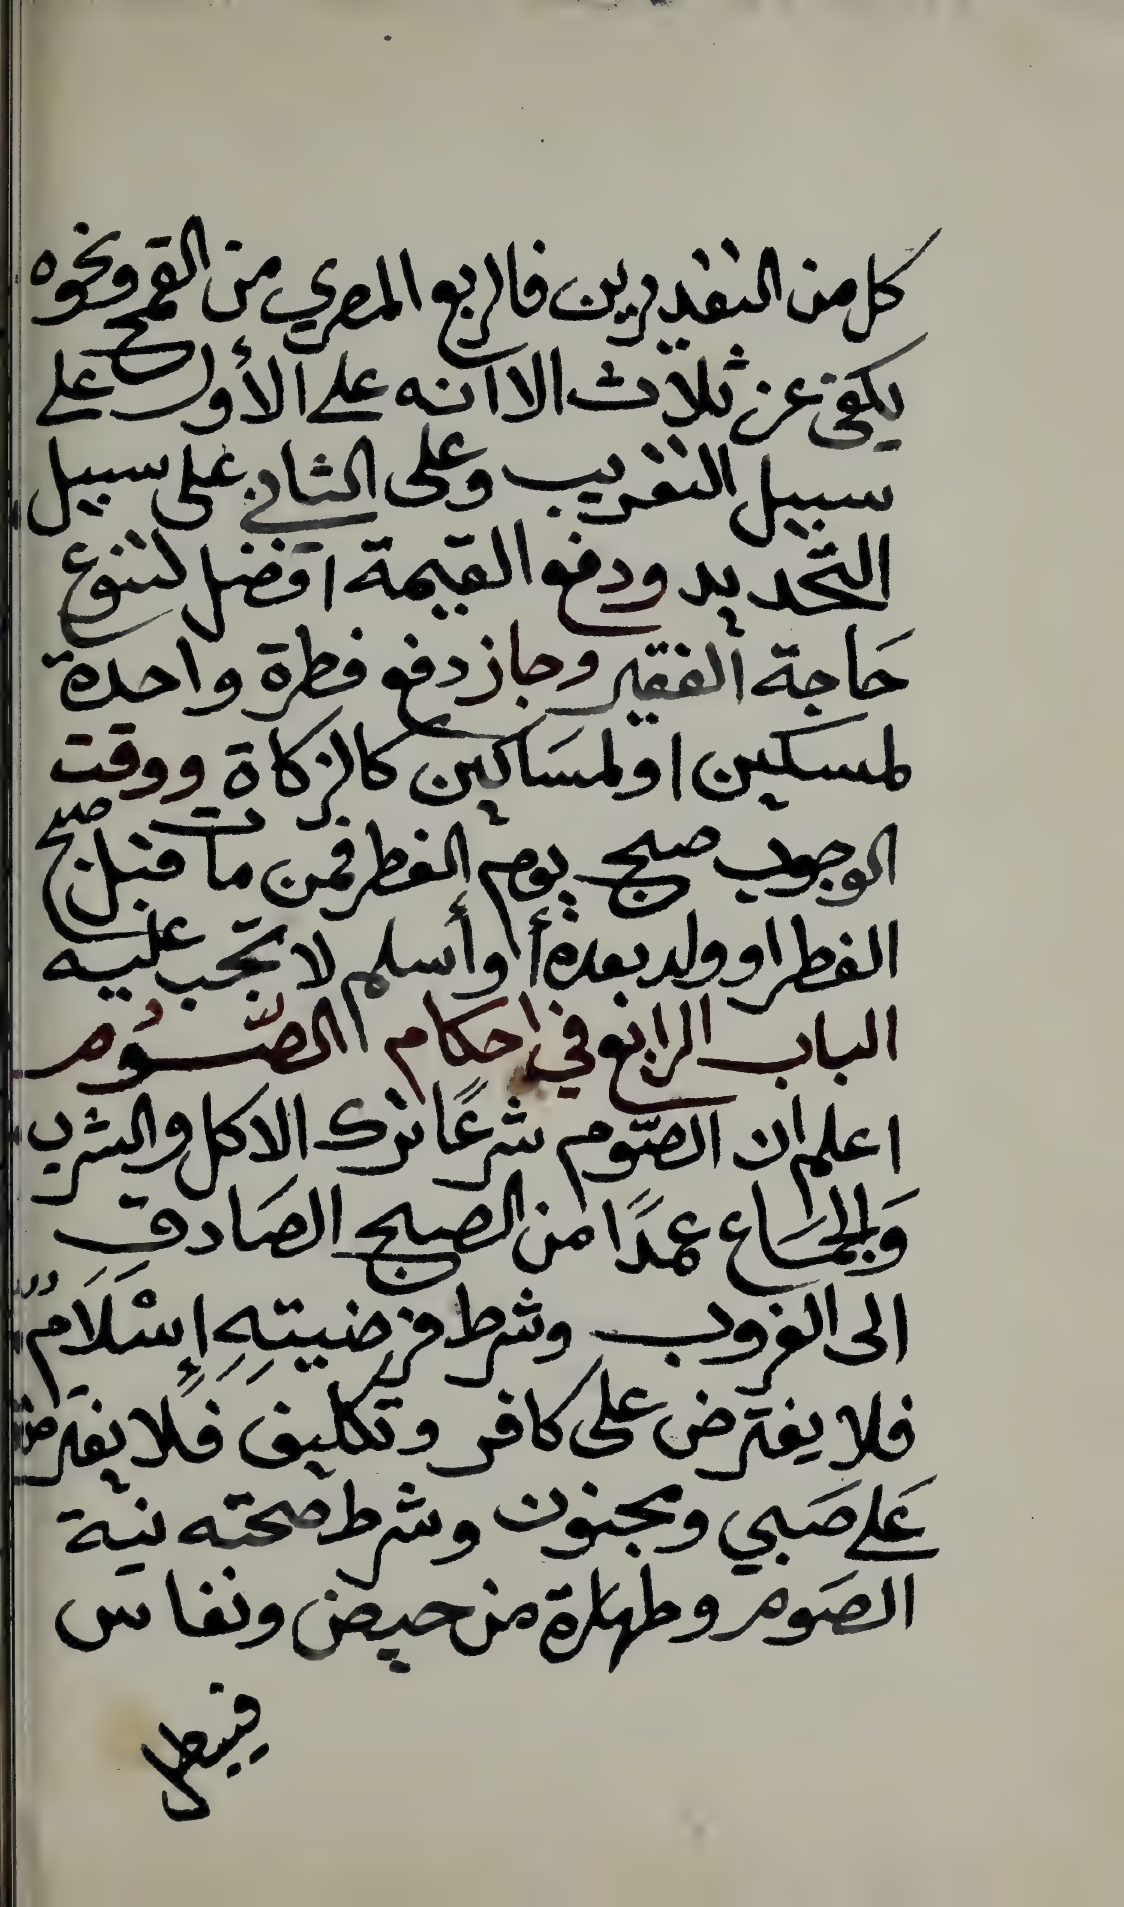 كل من التقديرين فالربع المصري من القمح ونحوه
يكفى عن ثلاث الا انه على الأول على
سبيل التقريب وعلى الثاني على سبيل
التحديد ودفع القيمة افضل لتنوع
حاجة الفقير وجاز دفع فطرة واحدة
لمسكين او لمساكين كالزكاة ووقت
الوجوب صبح يوم الفطر فمن مات قبل صبح
الفطر او ولد بعده أ وأسلم لا تجب عليه
الباب الرابع في احكام الصَّوم
اعلم ان الصّوم شرعًا ترك الاكل والشرب
وَالجمَاع عمدًا من الصبح الصَادق
الى الغروب وشرط فرضيتهِ إِسْلَامٌ
فلا يفترض على كافر وتكليف فلا يفترض
عَلى صَبي ومجنون وشرط صحته نية
الصَوم وطهارة من حيض ونفاس
فيبطل